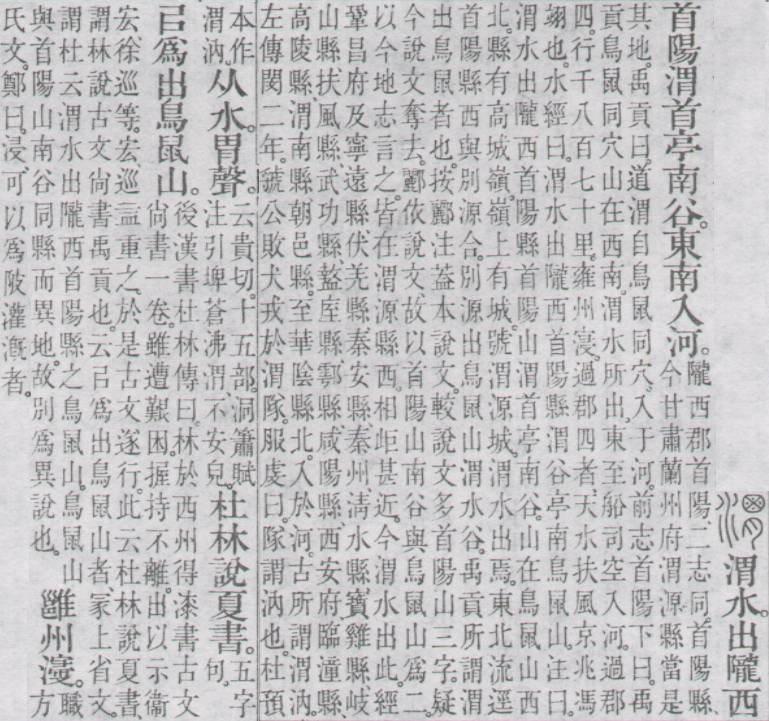 渭水。出隴西
首陽渭首亭南谷。東南入河。隴西郡首陽二志同。首陽縣
今甘肅蘭州府渭源縣當是
其地。禹貢曰。道渭自鳥鼠同穴。入于河。前志首陽下曰。禹
貢鳥鼠同穴山在西南。渭水所出。東至船司空入河。過郡
四。行千八百七十里。雍州寖。過郡四者、天水扶風京兆馮
翊也。水經曰。渭水出隴西首陽縣渭谷亭南鳥鼠山。注曰。
渭水出隴西首陽縣首陽山渭首亭南谷。山在鳥鼠山西
北。縣有高城嶺。嶺上有城。號渭源城。渭水出焉。東北流逕
首陽縣西與別源合。別源出鳥鼠山渭水谷。禹貢所謂渭
出鳥鼠者也。按酈注葢本說文。較說文多首陽山三字。疑
今說文奪去。酈依說文。故以首陽山南谷與鳥鼠山爲二。
以今地志言之。皆在渭源縣西。相歫甚近。今渭水出此。經
鞏昌府及寧遠縣、伏羌縣、秦安縣、秦州、淸水縣、寶雞縣、岐
山縣、扶風縣、武功縣、盩厔縣、鄠縣、咸陽縣、西安府臨潼縣、
高陵縣、渭南縣、朝邑縣。至華陰縣北。入於河。古所謂渭汭。
左傳閔二年。虢公敗犬戎於渭隊。服虔曰。隊謂汭也。杜預
本作渭汭。从水。胃聲。云貴切。十五部。洞簫賦注引埤蒼沸渭、不安皃。杜林說夏書。五字句。
㠯爲出鳥鼠山。後漢書杜林傳曰。林於西州得漆書古文
尙書一卷。雖遭艱困。握持不離。出以示衛
宏、徐巡等。宏、巡益重之。於是古文遂行。此云杜林說夏書、
謂林說古文尙書禹貢也。云㠯爲出鳥鼠山者、冡上省文。
謂杜云渭水出隴西首陽縣之鳥鼠山。鳥鼠山
與首陽山南谷同縣而異地。故別爲異說也。雝州寖。職方
氏文。鄭曰。浸可以爲陂灌漑者。